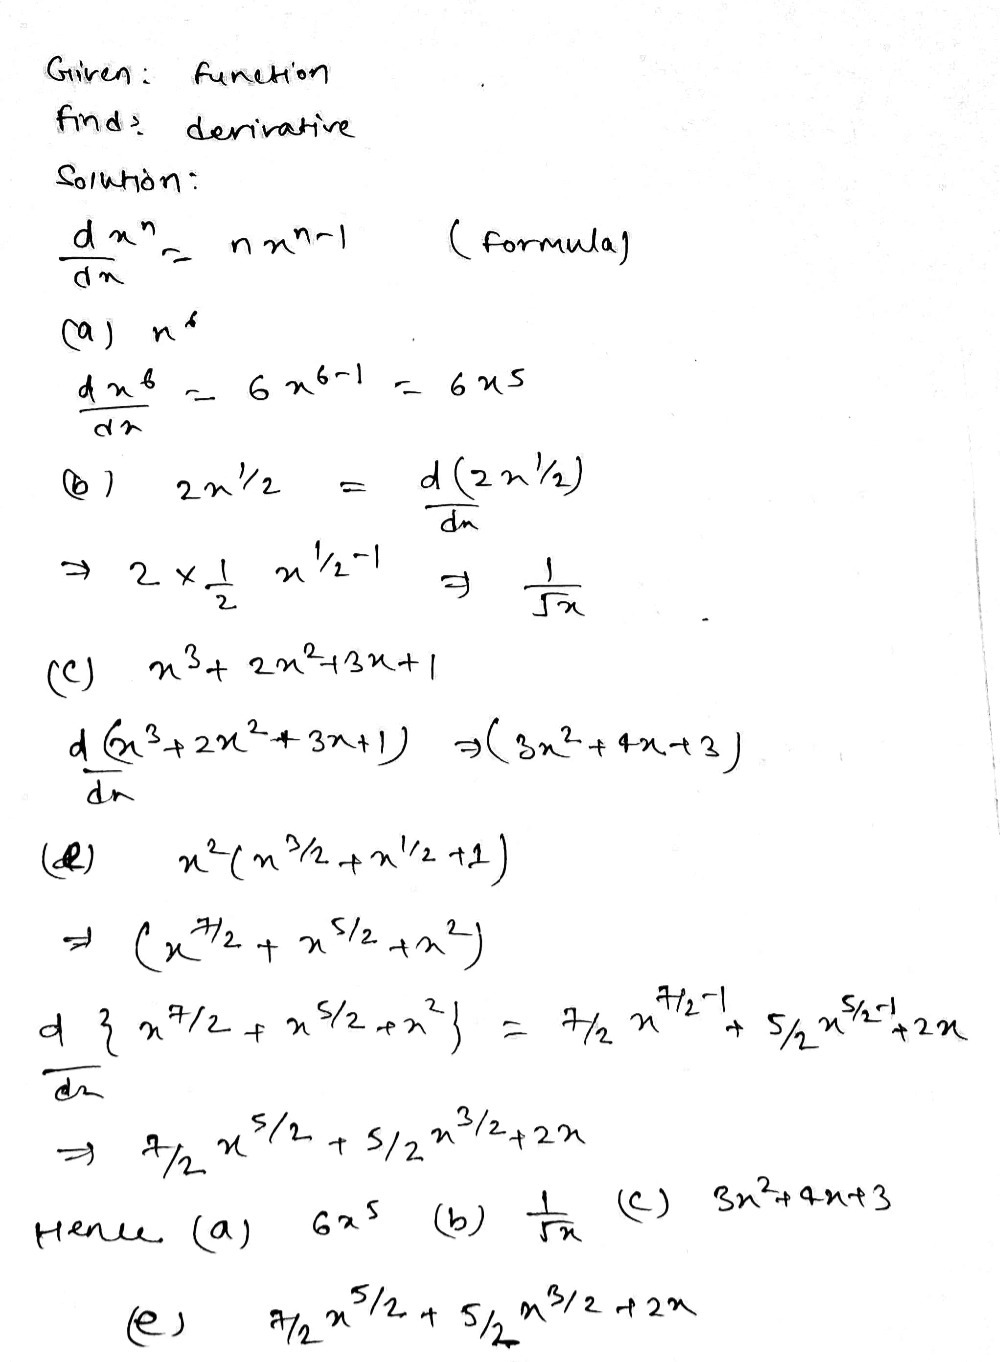 Given: function
find: derivative
Solution:
d xⁿ/dx = n xⁿ⁻¹ (formula)
(a) x⁶
d x⁶/dx = 6 x⁶⁻¹ = 6x⁵
(b) 2x^1/2 = d(2x^1/2)/dx
⇒ 2 × 1/2 x^1/2-1 ⇒ 1/√x
(c) x³+ 2x²+3x+1
d(x³+2x²+3x+1)/dx ⇒ (3x²+4x+3)
(e) x²(x^3/2+x^1/2+1)
⇒ (x^7/2 + x^5/2 +x²)
d/dx {x^7/2 + x^5/2 +x²} = 7/2 x^7/2-1 + 5/2 x^5/2-1 +2x
⇒ 7/2 x^5/2 + 5/2 x^3/2 +2x
Hence (a) 6x⁵ (b) 1/√x (c) 3x²+4x+3
(e) 7/2 x^5/2 + 5/2 x^3/2 +2x